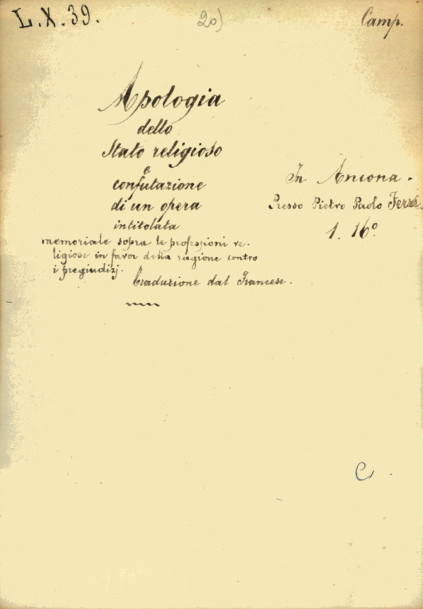 L.X.39.
20)
Camp.
Apologia
dello
Stato religioso
e
confutazione
di un opera
intitolata
memoriale sopra le professioni re-
ligiose in favor della ragione contro
i pregiudizj.
Traduzione dal Francese.
In Ancona.
Presso Pietro Paolo Ferri.
1. 16°.
C.